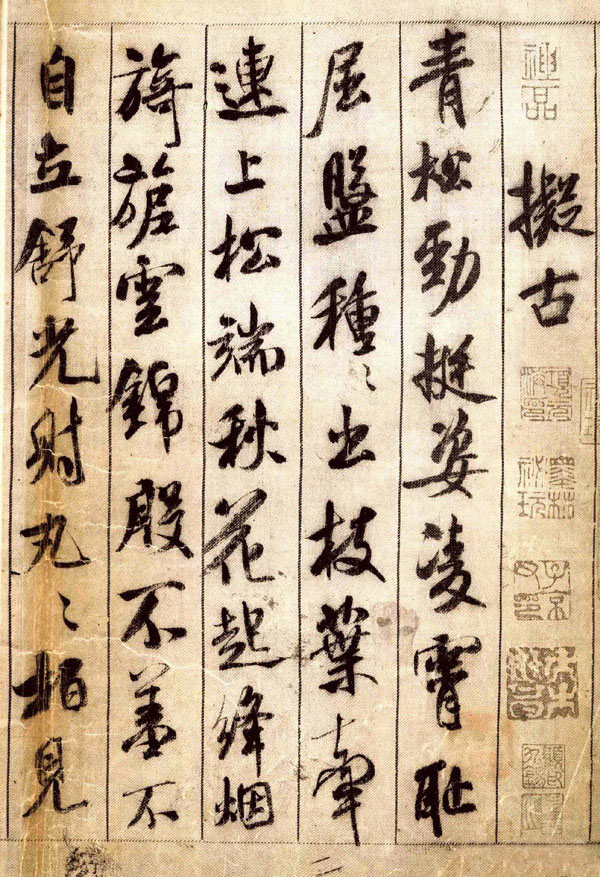 神品
擬古
青松勁挺姿凌霄恥
屈盤種〻出枝葉牽
連上松端秋花起絳烟
旖旎雲錦殷不羞不
自立舒光射丸〻柏見
二